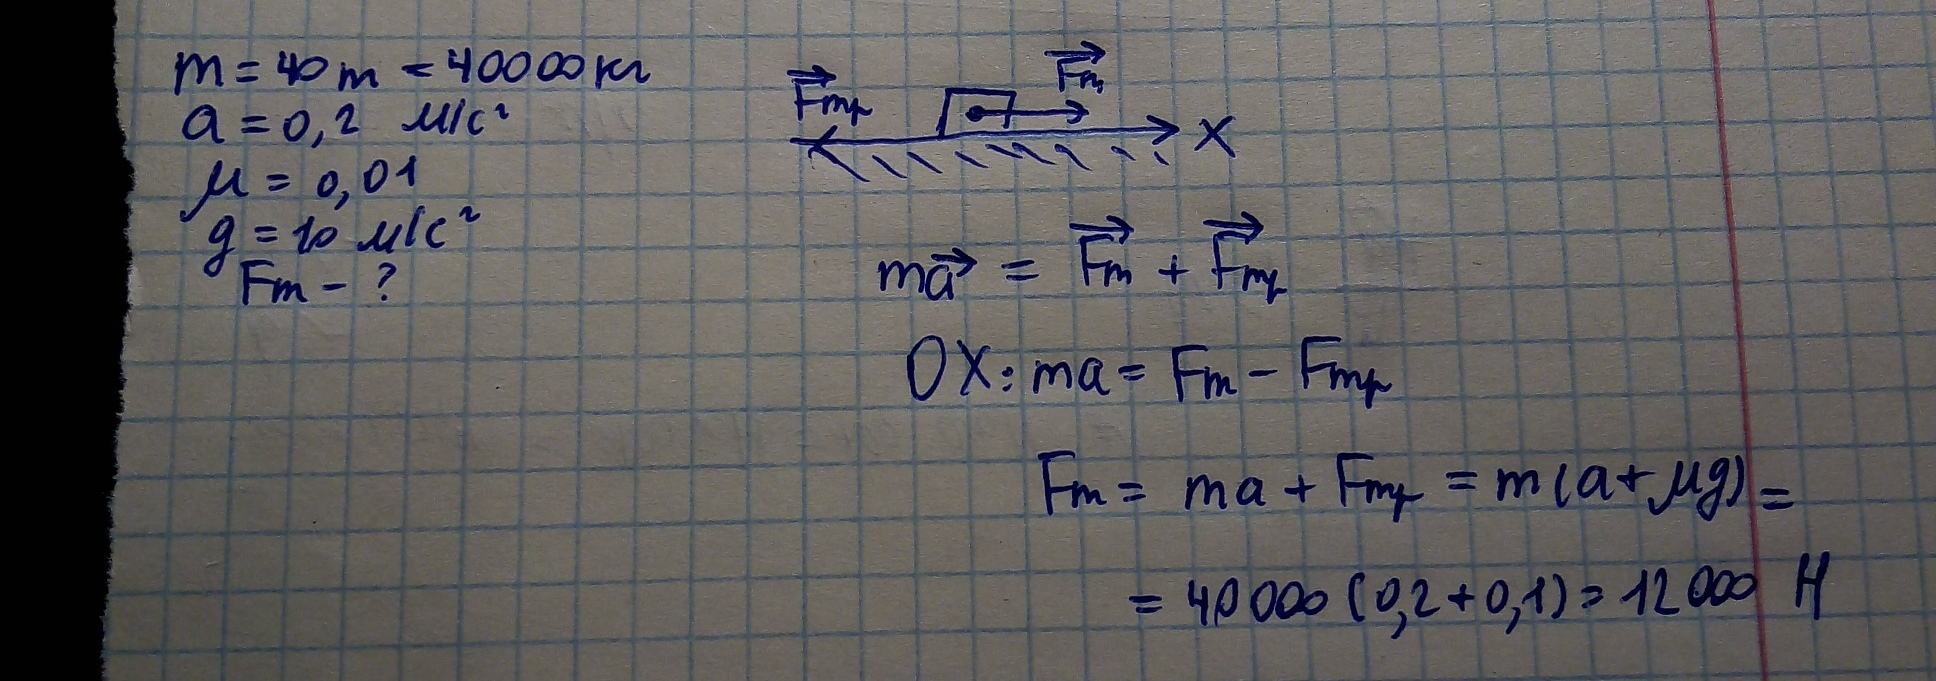 m = 40 т = 40000 кг
a = 0,2 м/с²
μ = 0,01
g = 10 м/с²
Fт - ?
Fтр Fт
X
ma = Fт + Fтр
OX: ma = Fт - Fтр
Fт = ma + Fтр = m(a + μg) =
= 40 000 (0,2 + 0,1) = 12 000 Н